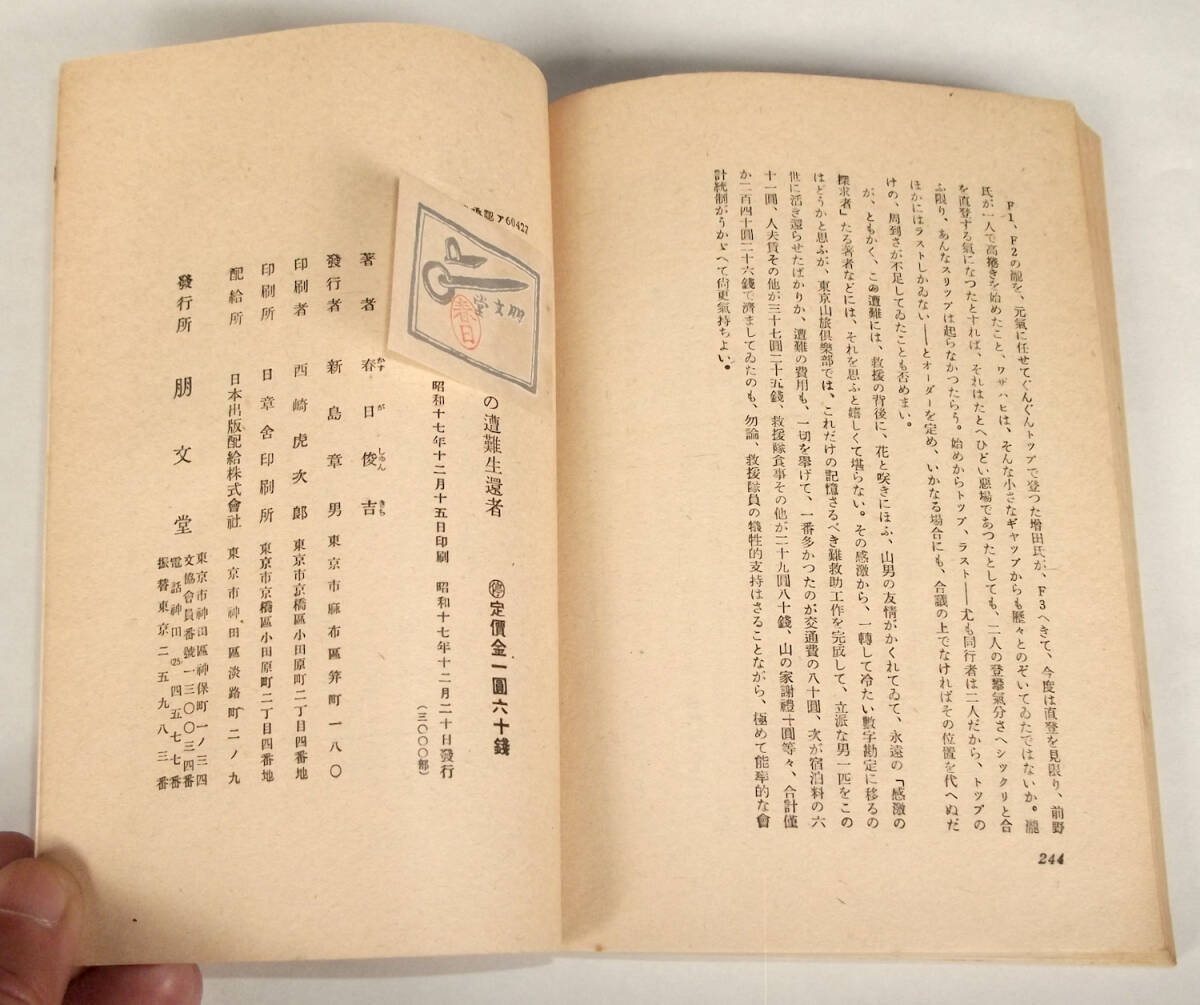 F1、F2の瀧を、元氣に任せてぐんぐんトップで登つた增田氏が、F3へきて、今度は直登を見限り、前野
氏が一人で高捲きを始めたこと、ワザハヒは、そんな小さなギャップからも歷々とのぞいてゐたではないか。瀧
を直登する氣になつたとすれば、それはたとへひどい惡場であつたとしても、二人の登攀氣分さへシックリと合
ふ限り、あんなスリップは起らなかつたらう。始めからトップ、ラスト――尤も同行者は二人だから、トップの
ほかにはラストしかゐない――とオーダーを定め、いかなる場合にも、合議の上でなければその位置を代へぬだ
けの、周到さが不足してゐたことも否めまい。
が、ともかく、この遭難には、救援の背後に、花と咲きにほふ、山男の友情がかくれてゐて、永遠の「感激の
探求者」たる著者などには、それを思ふと嬉しくて堪らない。その感激から、一轉して冷たい數字勘定に移るの
はどうかと思ふが、東京山旅俱樂部では、これだけの記憶さるべき難救助工作を完成して、立派な男一匹をこの
世に活き還らせたばかりか、遭難の費用も、一切を擧げて、一番多かつたのが交通費の八十圓、次が宿泊料の六
十一圓、人夫賃その他が三十七圓二十五錢、救援隊食事その他が二十九圓八十錢、山の家謝禮十圓等々、合計僅
か二百四十圓二十六錢で濟ましてゐたのも、勿論、救援隊員の犧牲的支持はさることながら、極めて能率的な會
計統制がうかゞへて尙更氣持ちよい。
244
ア60427
朋文堂
春日
の遭難生還者
㊞定價金一圓六十錢
昭和十七年十二月十五日印刷 昭和十七年十二月二十日發行
(三〇〇〇部)
著者 春日俊吉
かすがしゆんきち
發行者 新島章男 東京市麻布區笄町一八〇
印刷者 西崎虎次郞 東京市京橋區小田原町二丁目四番地
印刷所 日章舍印刷所 東京市京橋區小田原町二丁目四番地
配給所 日本出版配給株式會社 東京市神田區淡路町二ノ九
發行所 朋文堂
東京市神田區神保町一ノ三四
文協會員番號一三〇〇三四番
電話神田(25)四五七七番
振替東京二五九八三番